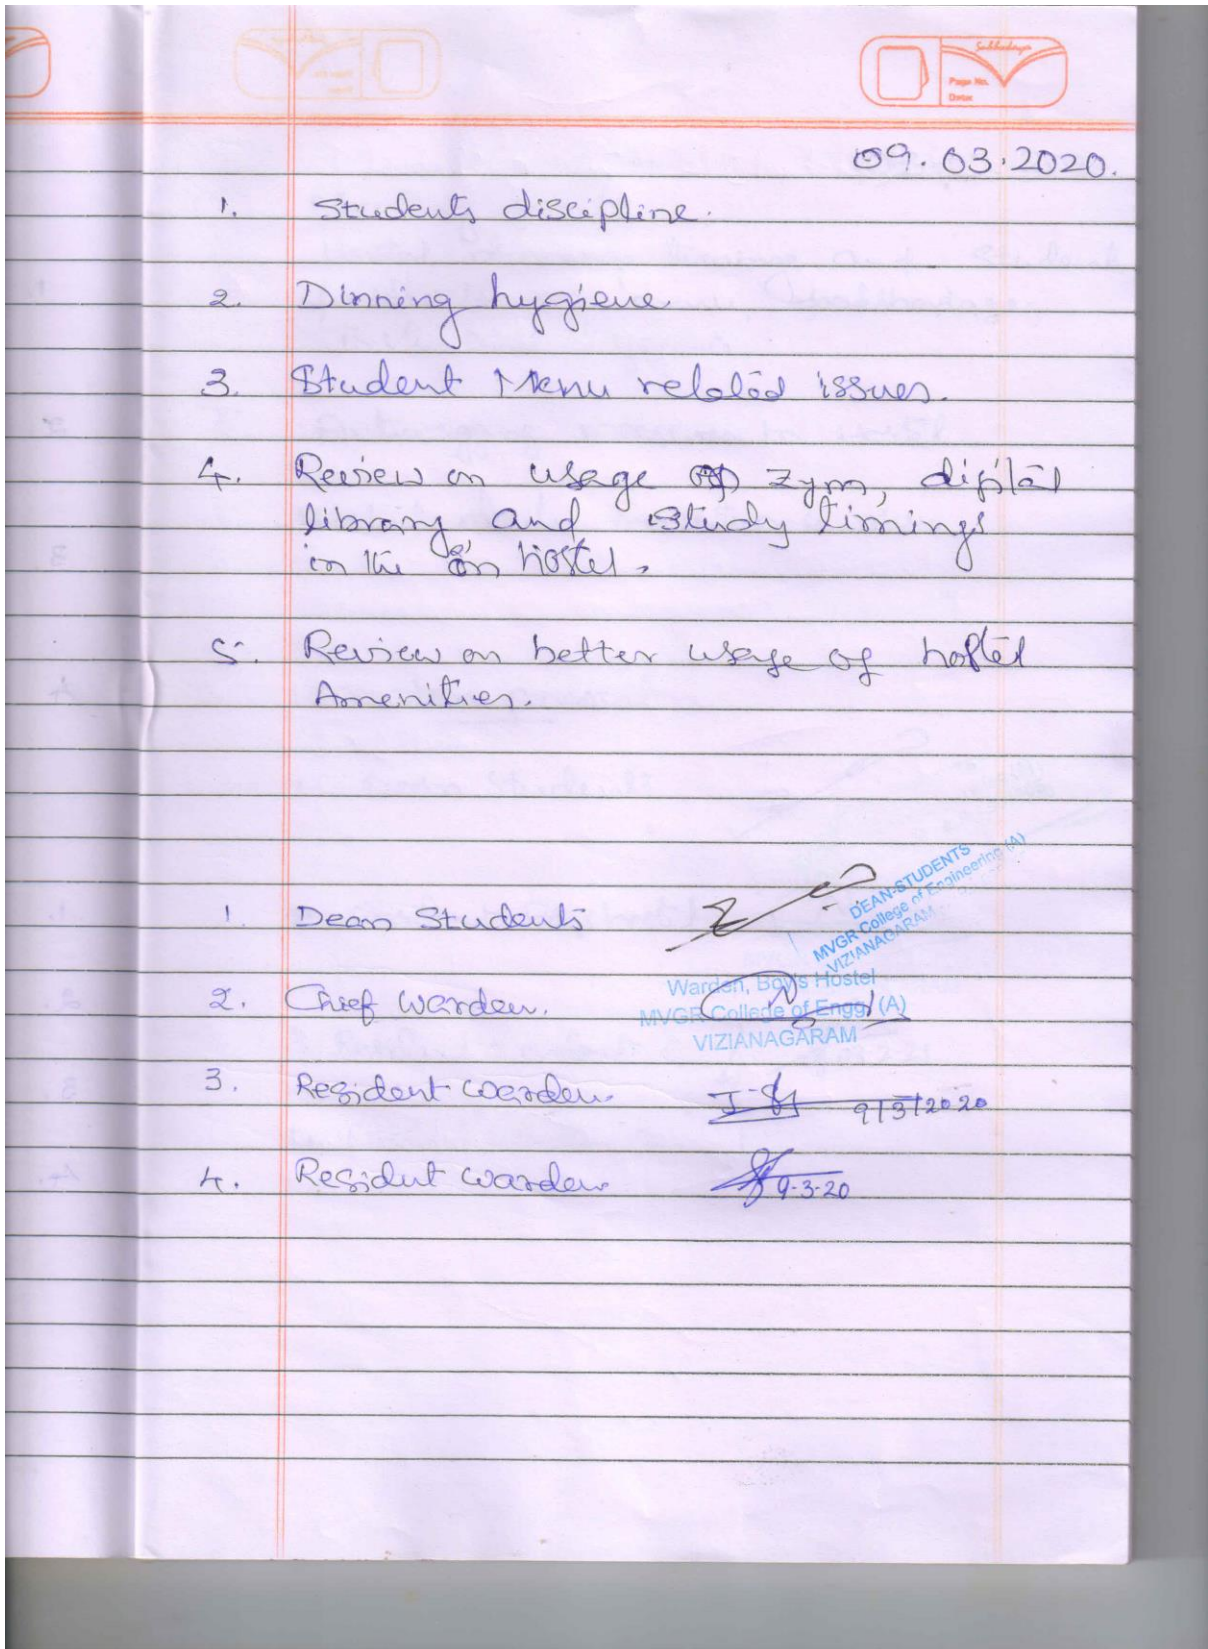 Page No.
Date:
09.03.2020.
1. Students discipline.
2. Dinning hygiene
3. Student Menu related issues.
4. Review on usage of zym, digital
library and study timings
in the on hostel.
5. Review on better usage of hostel
Amenities.
1. Dean Students
DEAN-STUDENTS
MVGR College of Engineering (A)
VIZIANAGARAM
2. Chief Warden.
Warden, Boy's Hostel
MVGR College of Engg. (A)
VIZIANAGARAM
3. Resident Warden 9/3/2020
4. Resident Warden 9-3-20